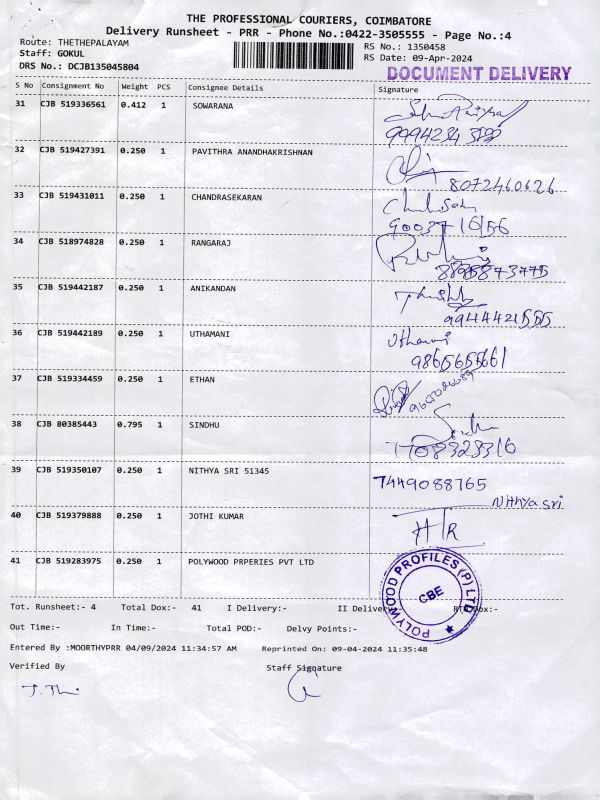 THE PROFESSIONAL COURIERS, COIMBATORE
Delivery Runsheet - PRR - Phone No.:0422-3505555 - Page No.:4
Route: THETHEPALAYAM RS No.: 1350458
Staff: GOKUL RS Date: 09-Apr-2024
DRS No.: DCJB135045804 DOCUMENT DELIVERY
S No Consignment No Weight PCS Consignee Details Signature
31 CJB 519336561 0.412 1 SOWARANA
32 CJB 519427391 0.250 1 PAVITHRA ANANDHAKRISHNAN
8072460626
33 CJB 519431011 0.250 1 CHANDRASEKARAN
34 CJB 518974828 0.250 1 RANGARAJ
35 CJB 519442187 0.250 1 ANIKANDAN
9944421555
36 CJB 519442189 0.250 1 UTHAMANI
37 CJB 519334459 0.250 1 ETHAN
38 CJB 80385443 0.795 1 SINDHU
Sindhu
39 CJB 519350107 0.250 1 NITHYA SRI 51345
7449088765
Nithya sri
40 CJB 519379888 0.250 1 JOTHI KUMAR
41 CJB 519283975 0.250 1 POLYWOOD PRPERIES PVT LTD
POLYWOOD PROFILES (P) LTD
CBE
Tot. Runsheet:- 4 Total Dox:- 41 I Delivery:- II Delivery
Out Time:- In Time:- Total POD:- Delvy Points:-
Entered By :MOORTHYPRR 04/09/2024 11:34:57 AM Reprinted On: 09-04-2024 11:35:48
Verified By Staff Signature